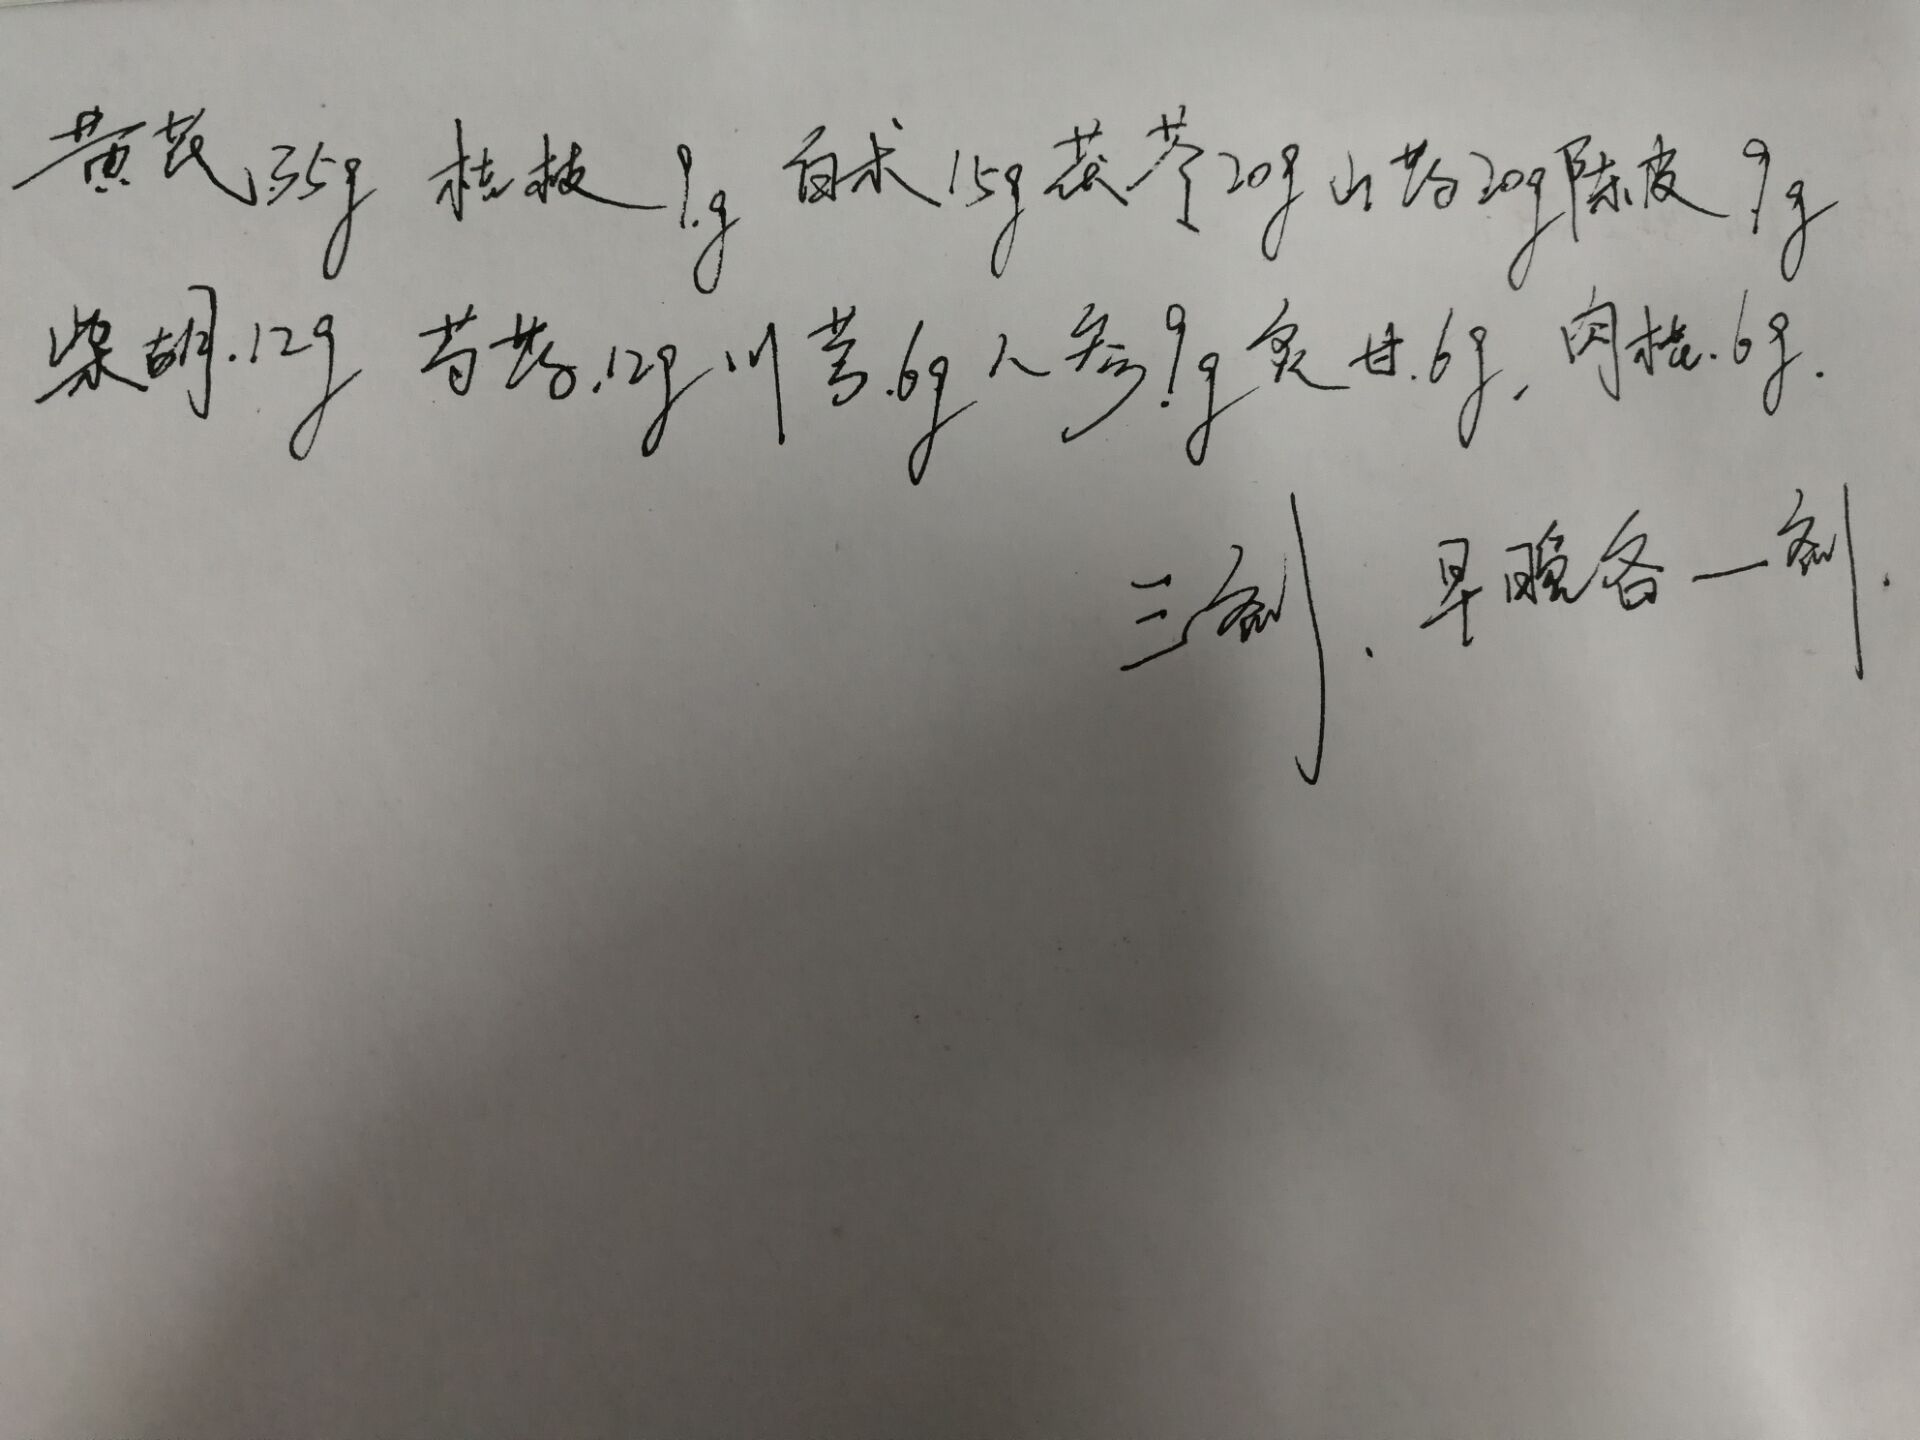 黄芪35g 桂枝9g 白术15g 茯苓20g 山药20g 陈皮9g
柴胡.12g 芍药.12g 川芎.6g 人参9g 炙甘.6g, 肉桂.6g.
三剂. 早晚各一剂.